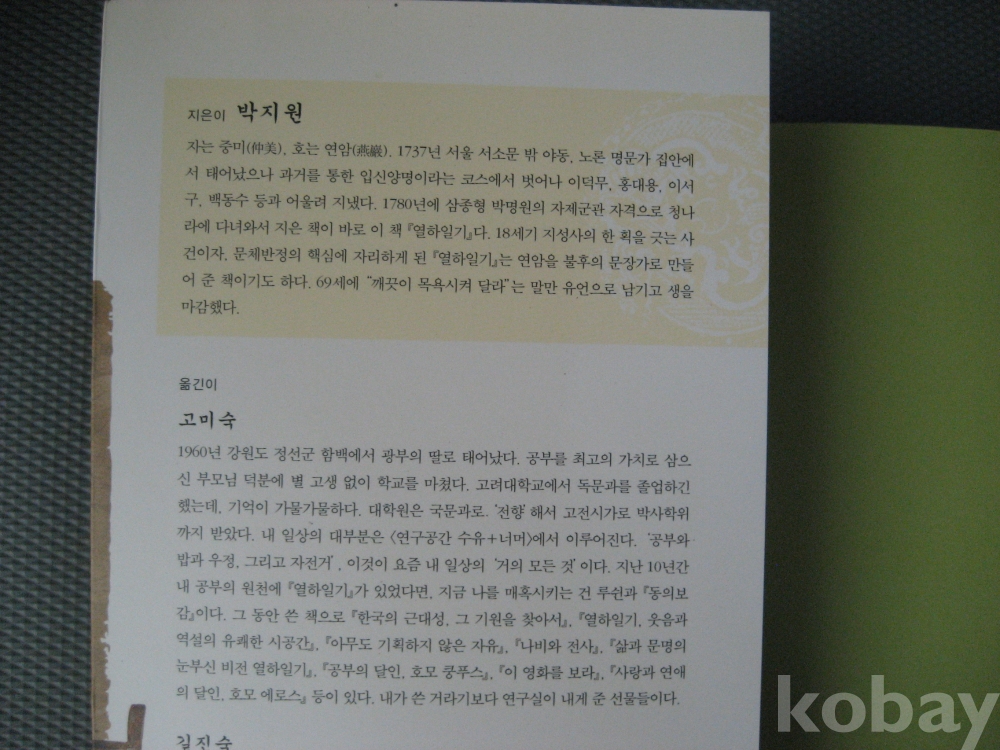 지은이 박지원
자는 중미(仲美), 호는 연암(燕巖). 1737년 서울 서소문 밖 야동, 노론 명문가 집안에
서 태어났으나 과거를 통한 입신양명이라는 코스에서 벗어나 이덕무, 홍대용, 이서
구, 백동수 등과 어울려 지냈다. 1780년에 삼종형 박명원의 자제군관 자격으로 청나
라에 다녀와서 지은 책이 바로 이 책 『열하일기』다. 18세기 지성사의 한 획을 긋는 사
건이자, 문체반정의 핵심에 자리하게 된 『열하일기』는 연암을 불후의 문장가로 만들
어 준 책이기도 하다. 69세에 “깨끗이 목욕시켜 달라”는 말만 유언으로 남기고 생을
마감했다.
옮긴이
고미숙
1960년 강원도 정선군 함백에서 광부의 딸로 태어났다. 공부를 최고의 가치로 삼으
신 부모님 덕분에 별 고생 없이 학교를 마쳤다. 고려대학교에서 독문과를 졸업하긴
했는데, 기억이 가물가물하다. 대학원은 국문과로 ‘전향’해서 고전시가로 박사학위
까지 받았다. 내 일상의 대부분은 〈연구공간 수유+너머〉에서 이루어진다. ‘공부와
밥과 우정, 그리고 자전거’, 이것이 요즘 내 일상의 ‘거의 모든 것’이다. 지난 10년간
내 공부의 원천에 『열하일기』가 있었다면, 지금 나를 매혹시키는 건 루쉰과 『동의보
감』이다. 그 동안 쓴 책으로 『한국의 근대성, 그 기원을 찾아서』, 『열하일기, 웃음과
역설의 유쾌한 시공간』, 『아무도 기획하지 않은 자유』, 『나비와 전사』, 『삶과 문명의
눈부신 비전 열하일기』, 『공부의 달인, 호모 쿵푸스』, 『이 영화를 보라』, 『사랑과 연애
의 달인, 호모 에로스』 등이 있다. 내가 쓴 거라기보다 연구실이 내게 준 선물들이다.
길진숙
kobay